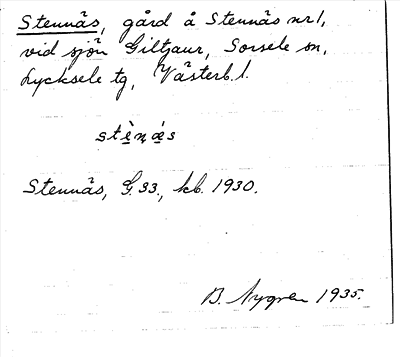 Stennäs, gård å Stennäs nr 1,
vid sjön Giltjaur, Sorsele sn,
Lycksele tg, Västerb. l.
stè̱ṇǽ̱s
Stennäs, G. 33., kb. 1930.
B. Nygren 1935.